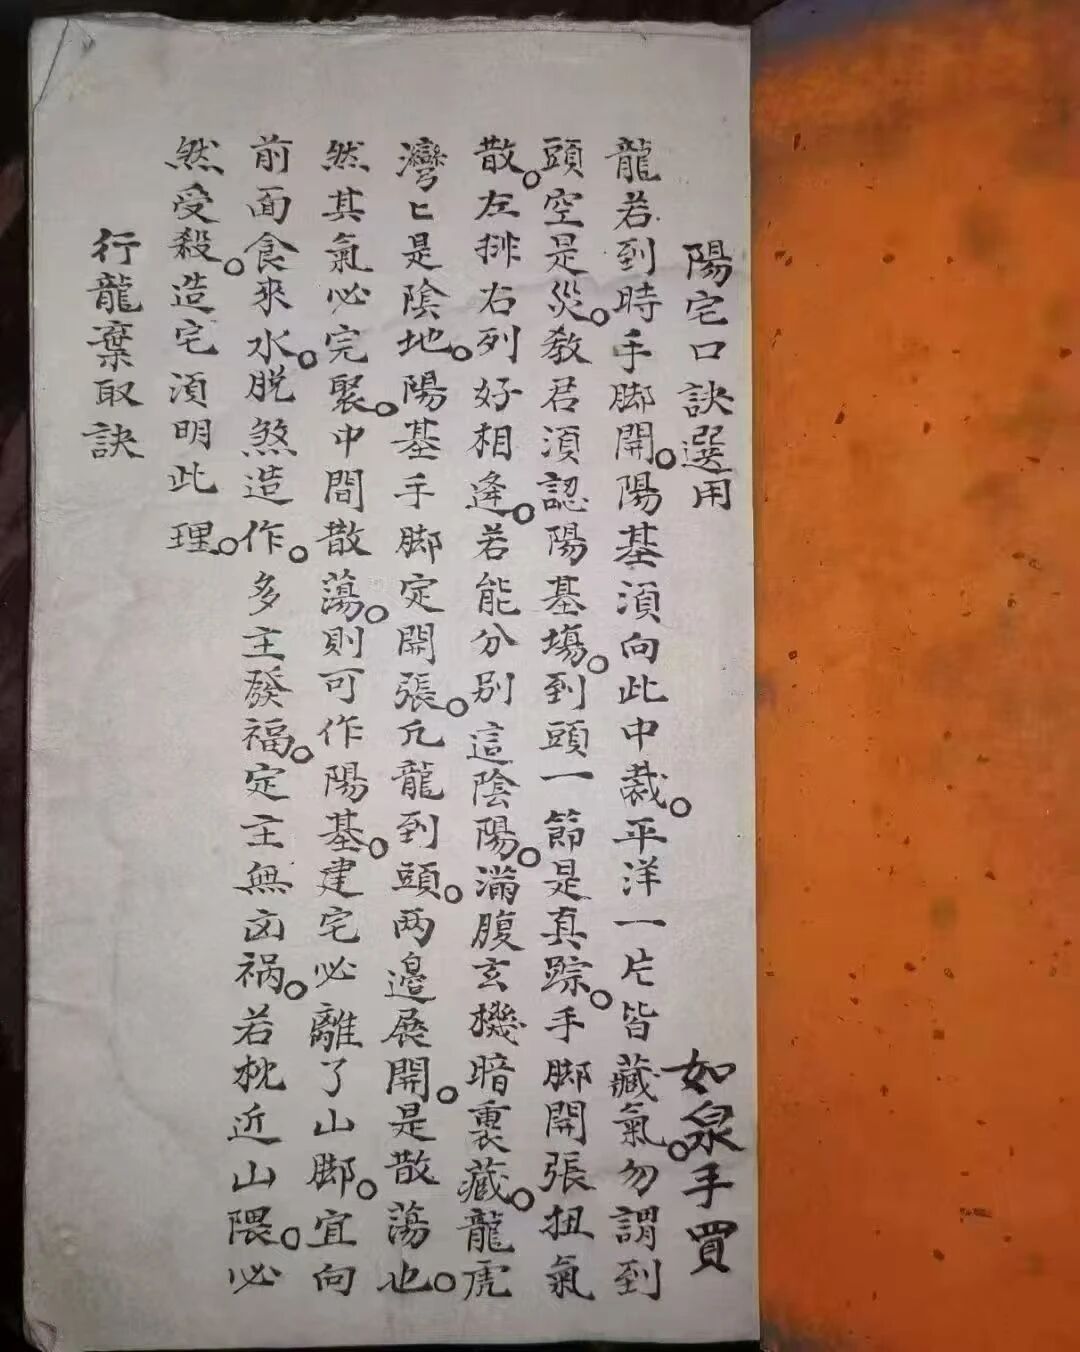 陽宅口訣選用 如泉手買
龍若到時手脚開。陽基湏向此中裁。平洋一片皆藏氣。勿謂到
頭空是災。教君湏認陽基塲。到頭一節是真踪。手脚開張扭氣
散。左排右列好相逢。若能分別這陰陽。滿腹玄機暗裏藏。龍虎
灣匕是陰地。陽基手脚定開張。凢龍到頭。两邉展開。是散蕩也。
然其氣必完聚。中間散蕩。則可作陽基。建宅必離了山脚。宜向
前面食來水。脱煞造作。多主發福。定主無凶禍。若枕近山隈。必
然受殺。造宅湏明此理。
行龍棄取訣